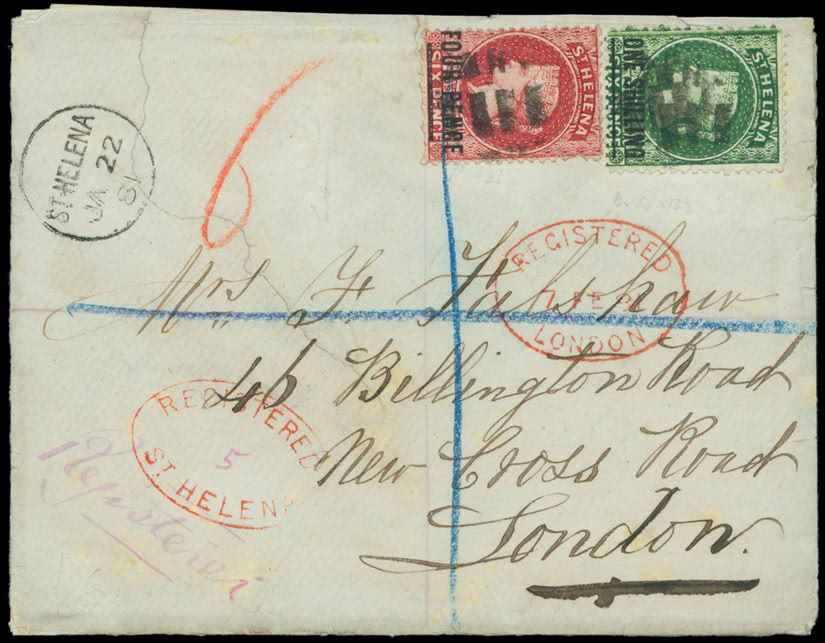 ST HELENA
JA 22
81
FOUR PENCE
SIX PENCE
ST HELENA
ONE SHILLING
ST HELENA
REGISTERED
7 FE 8
LONDON
Mrs F. Falshaw
46 Billington Road
New Cross Road
London.
REGISTERED
5
ST. HELENA
Registered